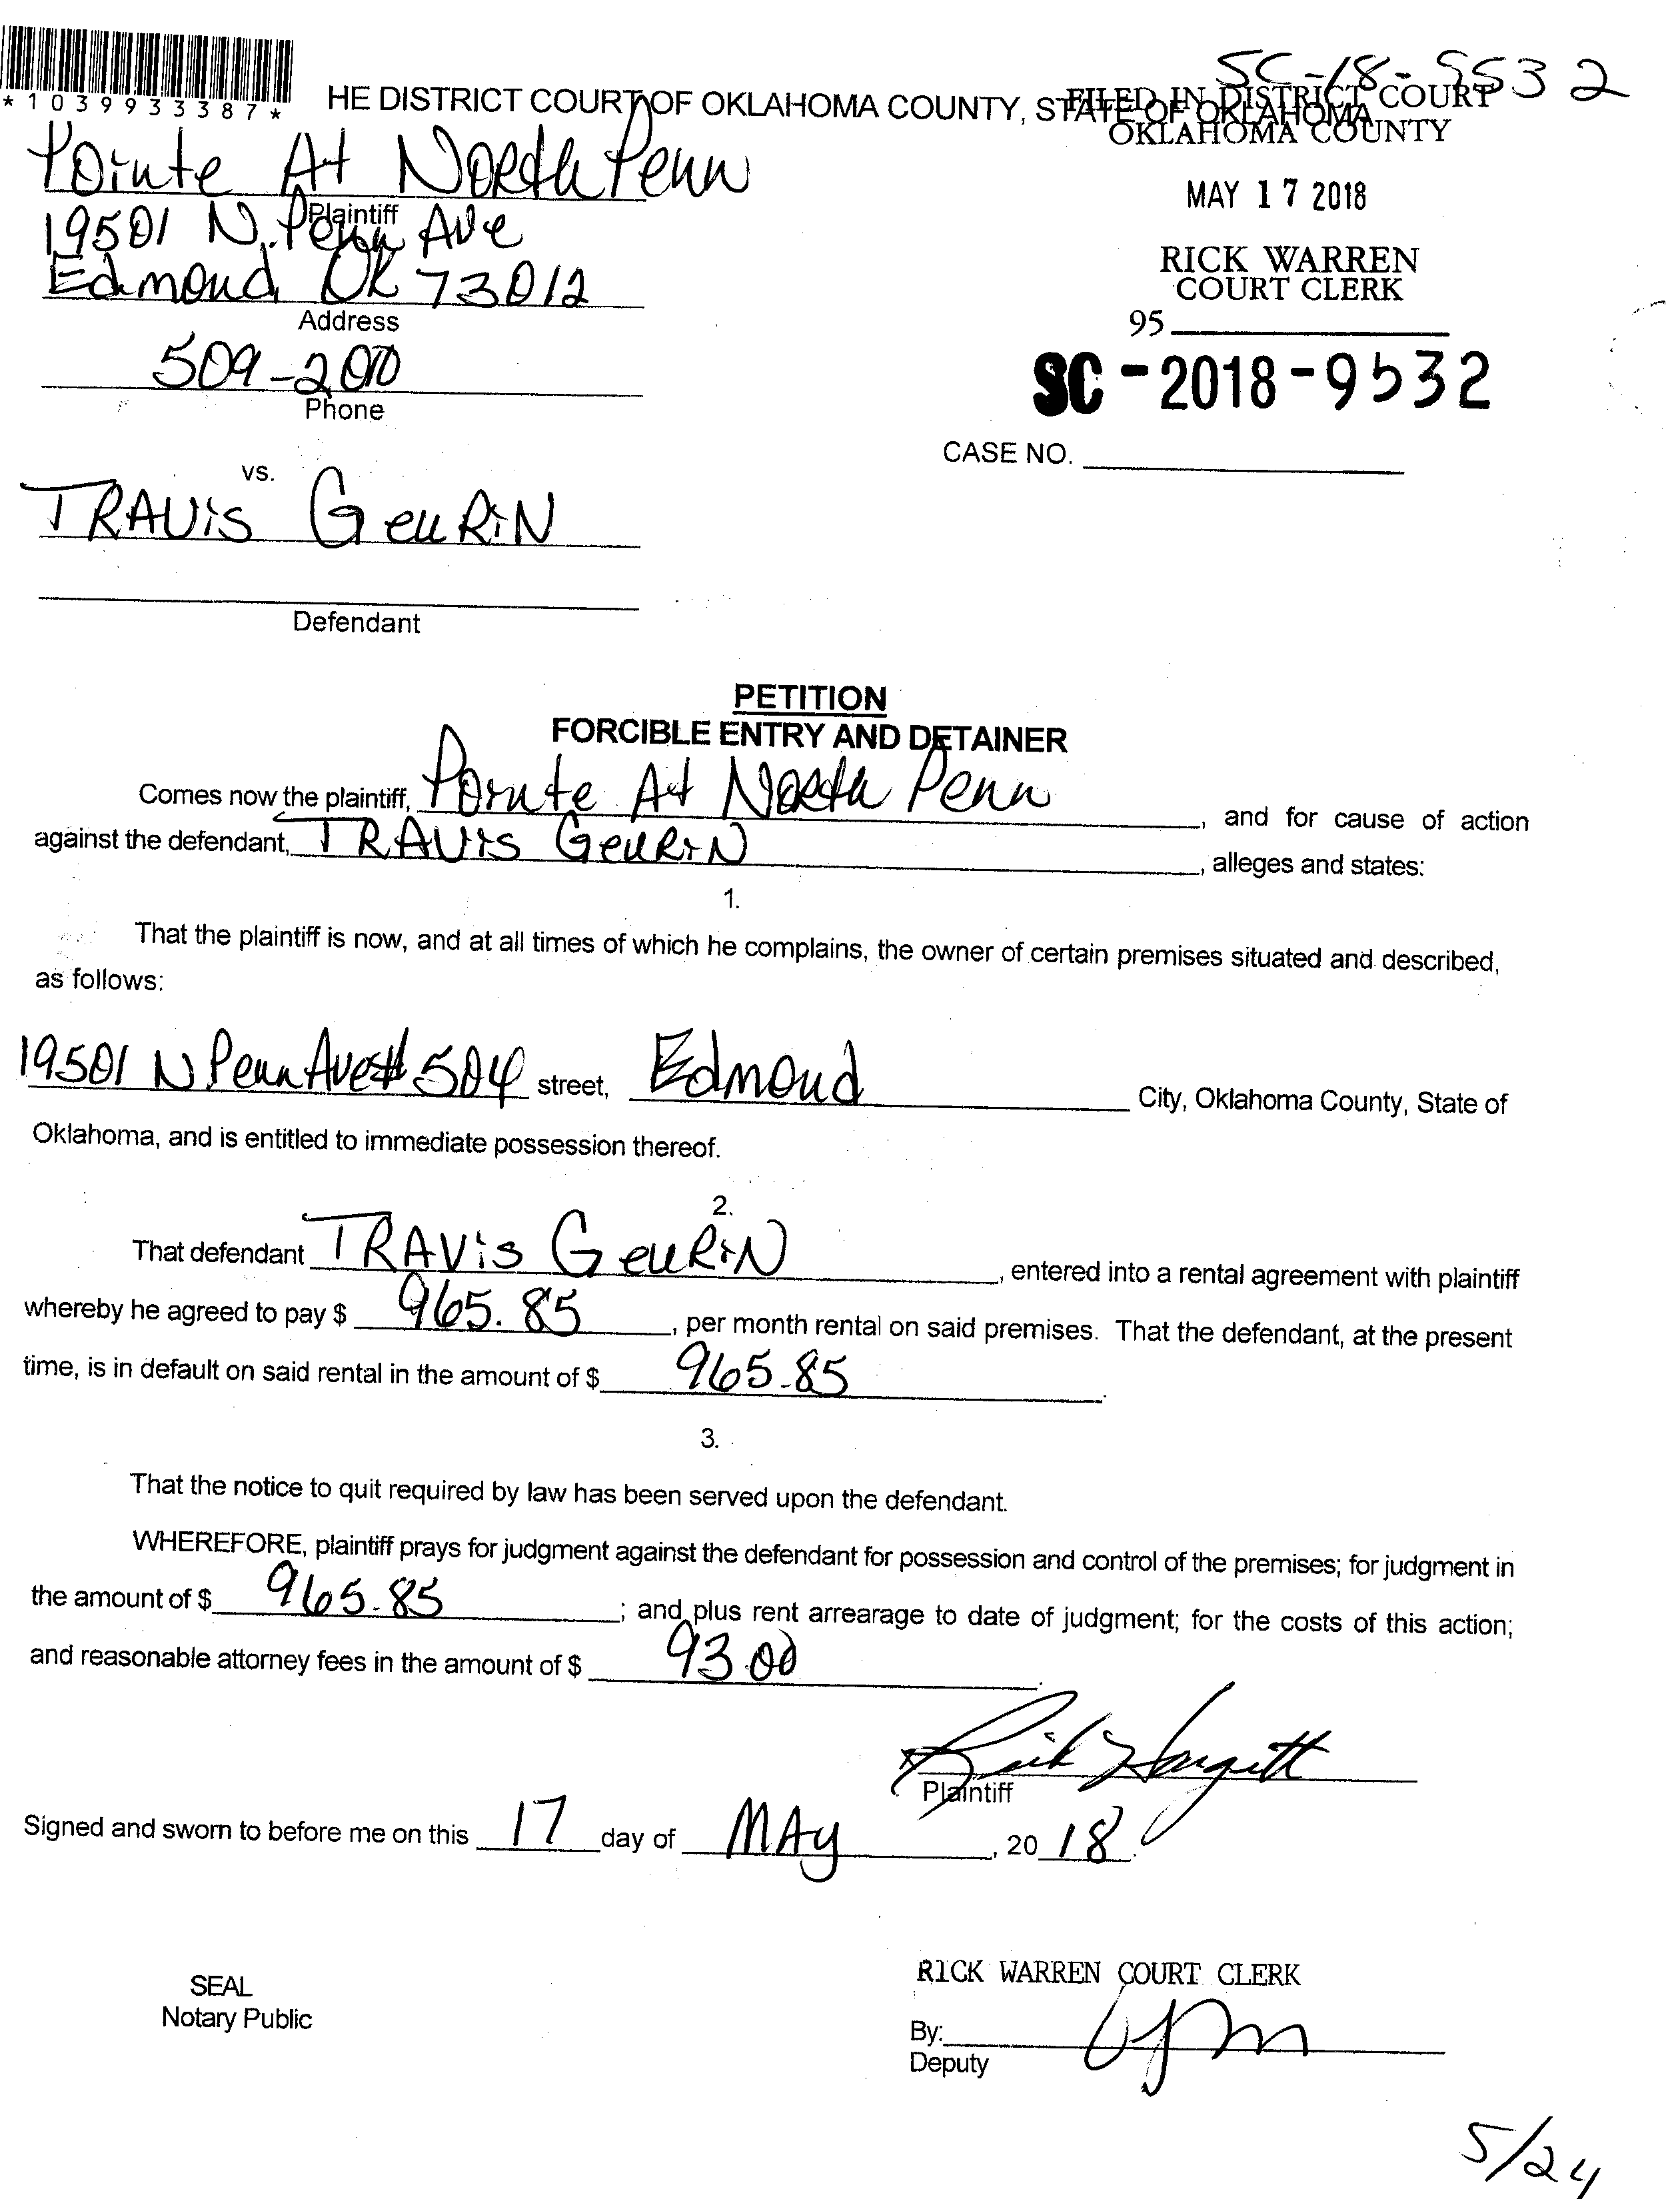 SC-18-9532
*1039933387*
HE DISTRICT COURT OF OKLAHOMA COUNTY, STATE OF OKLAHOMA
FILED IN DISTRICT COURT
OKLAHOMA COUNTY
MAY 17 2018
RICK WARREN
COURT CLERK
95
SC-2018-9532
CASE NO.
Pointe At North Penn
Plaintiff
19501 N. Penn Ave
Edmond, OK 73012
Address
509-200
Phone
vs.
TRAVIS GeuRiN
Defendant
PETITION
FORCIBLE ENTRY AND DETAINER
Comes now the plaintiff, Pointe At North Penn, and for cause of action
against the defendant, TRAVIS GeuRiN, alleges and states:
1.
That the plaintiff is now, and at all times of which he complains, the owner of certain premises situated and described,
as follows:
19501 N Penn Ave # 504 street, Edmond City, Oklahoma County, State of
Oklahoma, and is entitled to immediate possession thereof.
2.
That defendant TRAVIS GeuRiN, entered into a rental agreement with plaintiff
whereby he agreed to pay $ 965.85, per month rental on said premises. That the defendant, at the present
time, is in default on said rental in the amount of $ 965.85.
3.
That the notice to quit required by law has been served upon the defendant.
WHEREFORE, plaintiff prays for judgment against the defendant for possession and control of the premises; for judgment in
the amount of $ 965.85; and plus rent arrearage to date of judgment; for the costs of this action;
and reasonable attorney fees in the amount of $ 93.00.
x Rick Hargett
Plaintiff
Signed and sworn to before me on this 17 day of MAy, 2018.
SEAL
Notary Public
RICK WARREN COURT CLERK
By:
Deputy
5/24